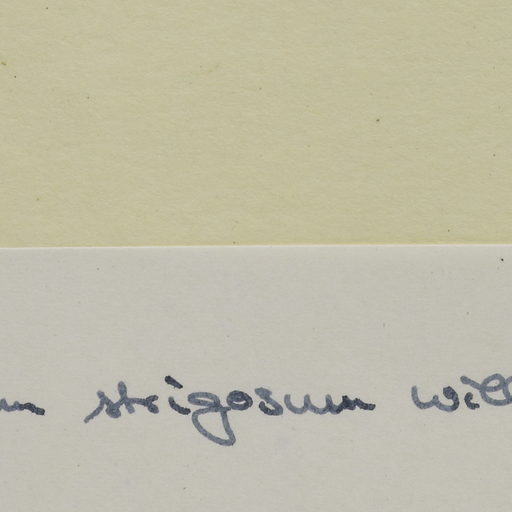 um strigosum Will